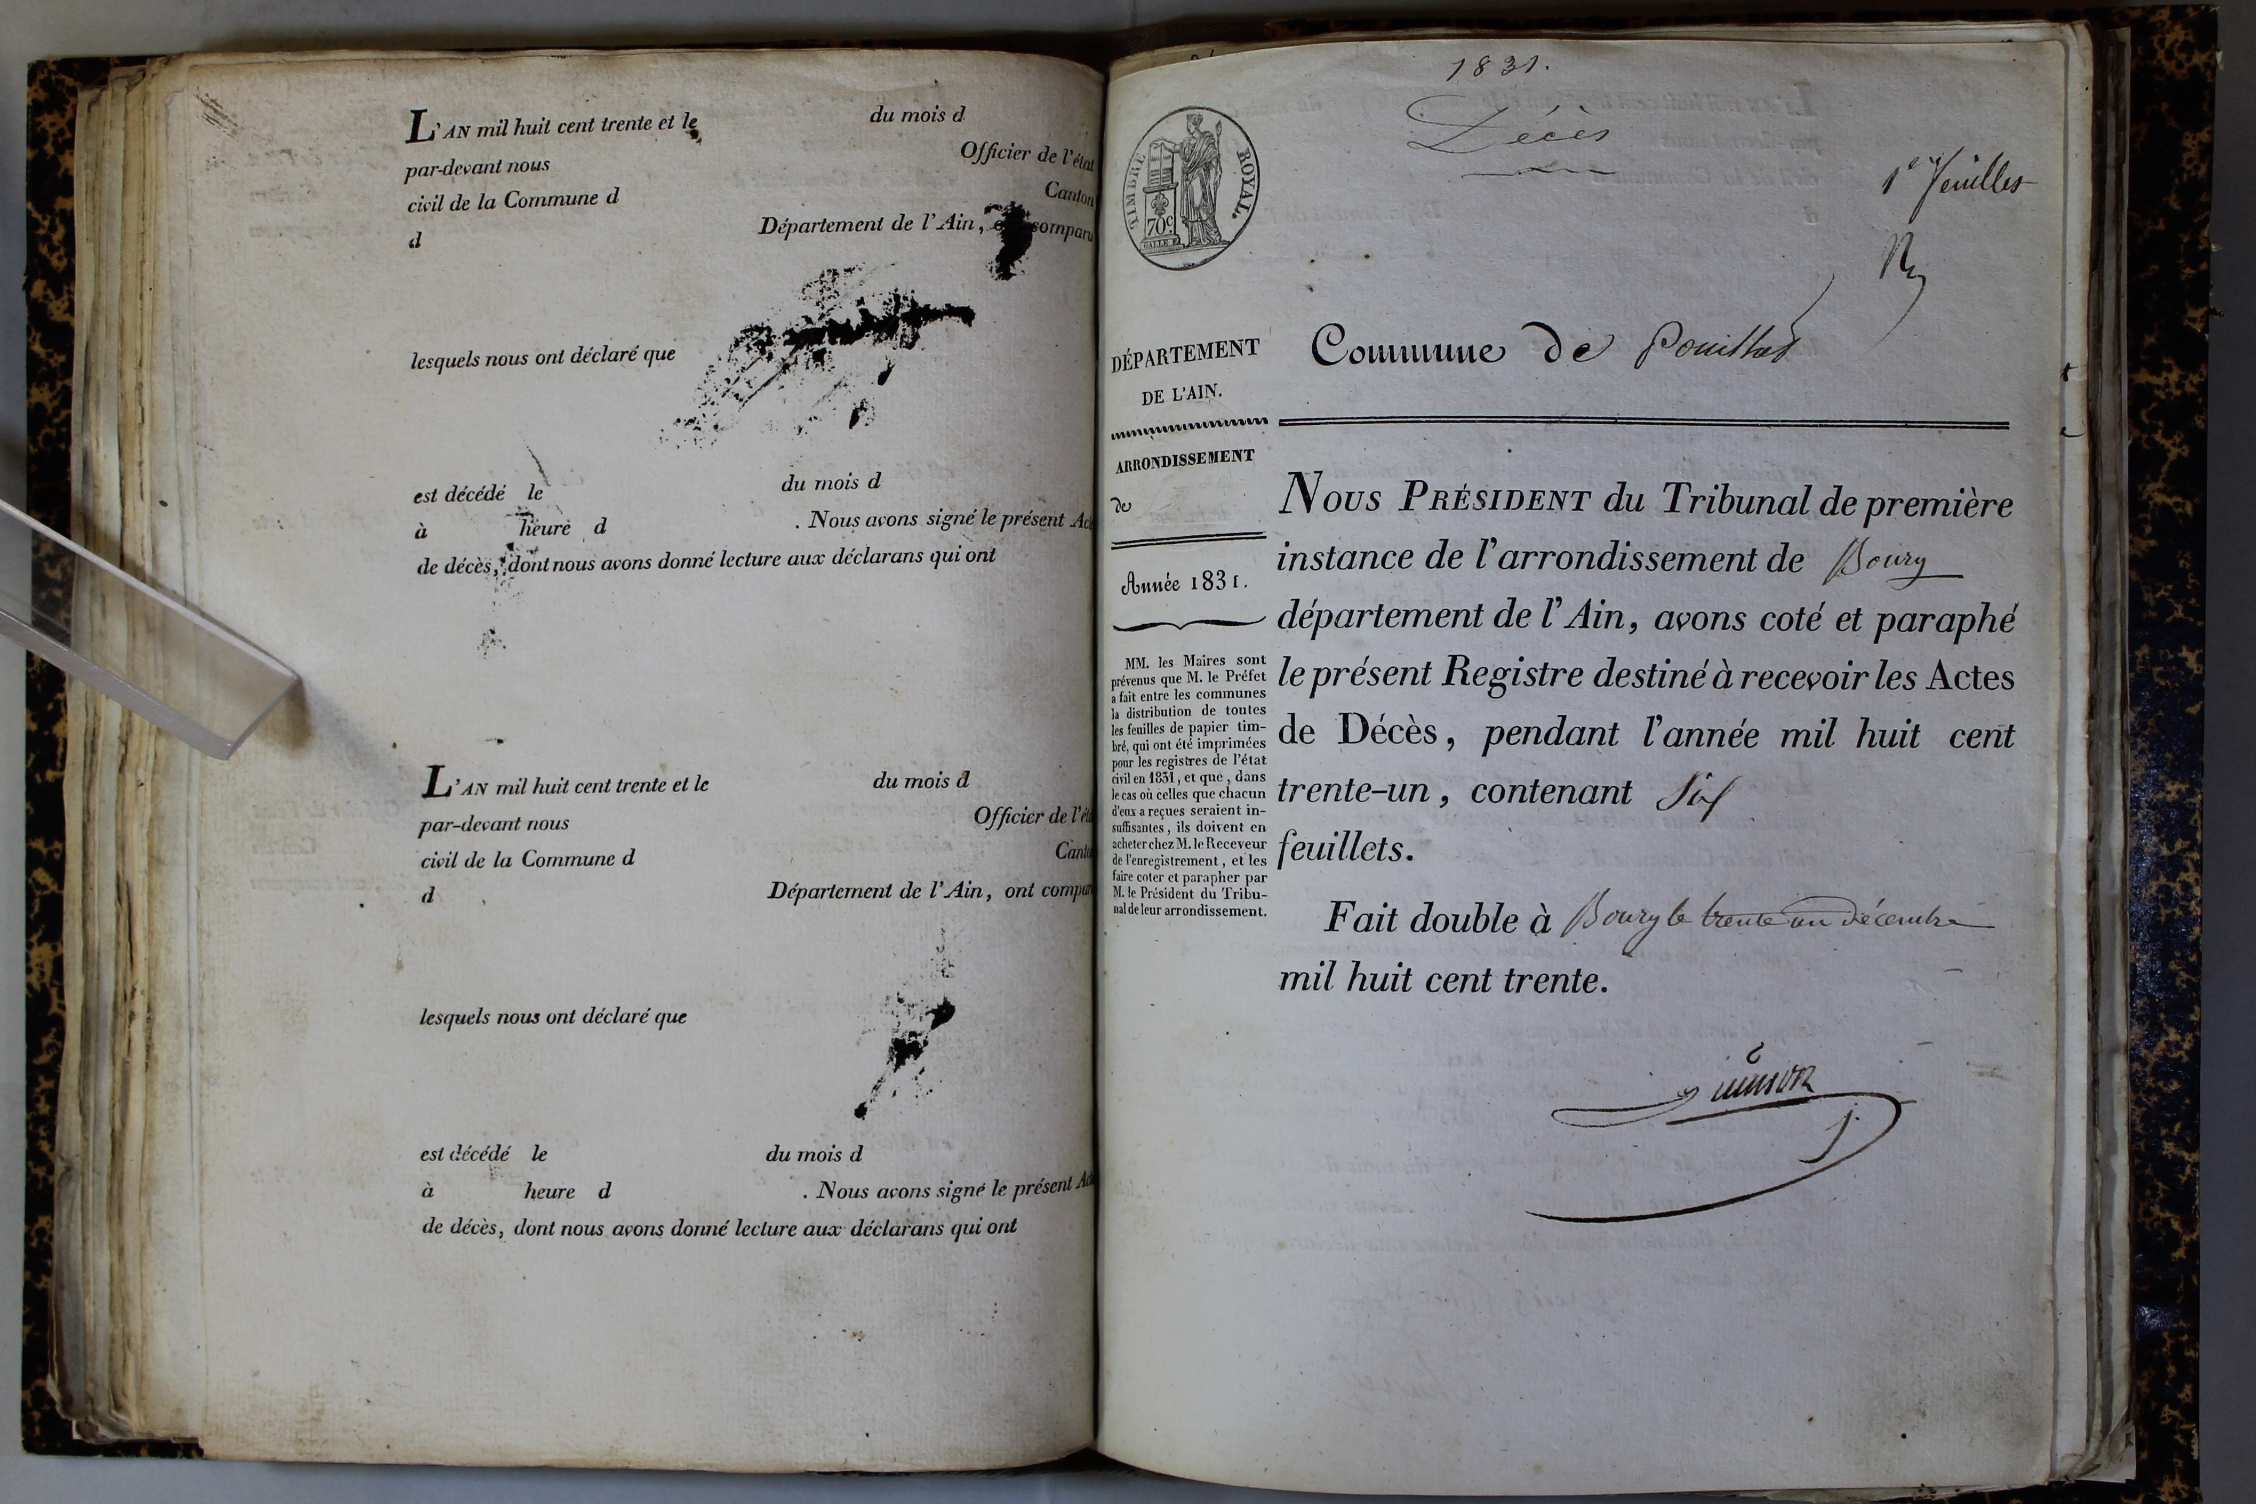 L'AN mil huit cent trente et le du mois d
par-devant nous Officier de l'état
civil de la Commune d Canton
d Département de l'Ain, comparu
lesquels nous ont déclaré que
est décédé le du mois d
à heure d . Nous avons signé le présent Acte
de décès, dont nous avons donné lecture aux déclarans qui ont
L'AN mil huit cent trente et le du mois d
par-devant nous Officier de l'éta
civil de la Commune d Canto
d Département de l'Ain, ont compar
lesquels nous ont déclaré que
est décédé le du mois d
à heure d . Nous avons signé le présent Act
de décès, dont nous avons donné lecture aux déclarans qui ont
1831.
Décès
TIMBRE ROYAL.
70c
1er feuillet
DÉPARTEMENT
DE L'AIN.
ARRONDISSEMENT
de
Année 1831.
MM. les Maires sont
prévenus que M. le Préfet
a fait entre les communes
la distribution de toutes
les feuilles de papier tim-
bré, qui ont été imprimées
pour les registres de l'état
civil en 1831, et que, dans
le cas où celles que chacun
d'eux a reçues seraient in-
suffisantes, ils doivent en
acheter chez M. le Receveur
de l'enregistrement, et les
faire coter et parapher par
M. le Président du Tribu-
nal de leur arrondissement.
Commune de Pouillat
NOUS PRÉSIDENT du Tribunal de première
instance de l'arrondissement de Bourg
département de l'Ain, avons coté et paraphé
le présent Registre destiné à recevoir les Actes
de Décès, pendant l'année mil huit cent
trente-un, contenant Six
feuillets.
Fait double à Bourg le trente un décembre
mil huit cent trente.